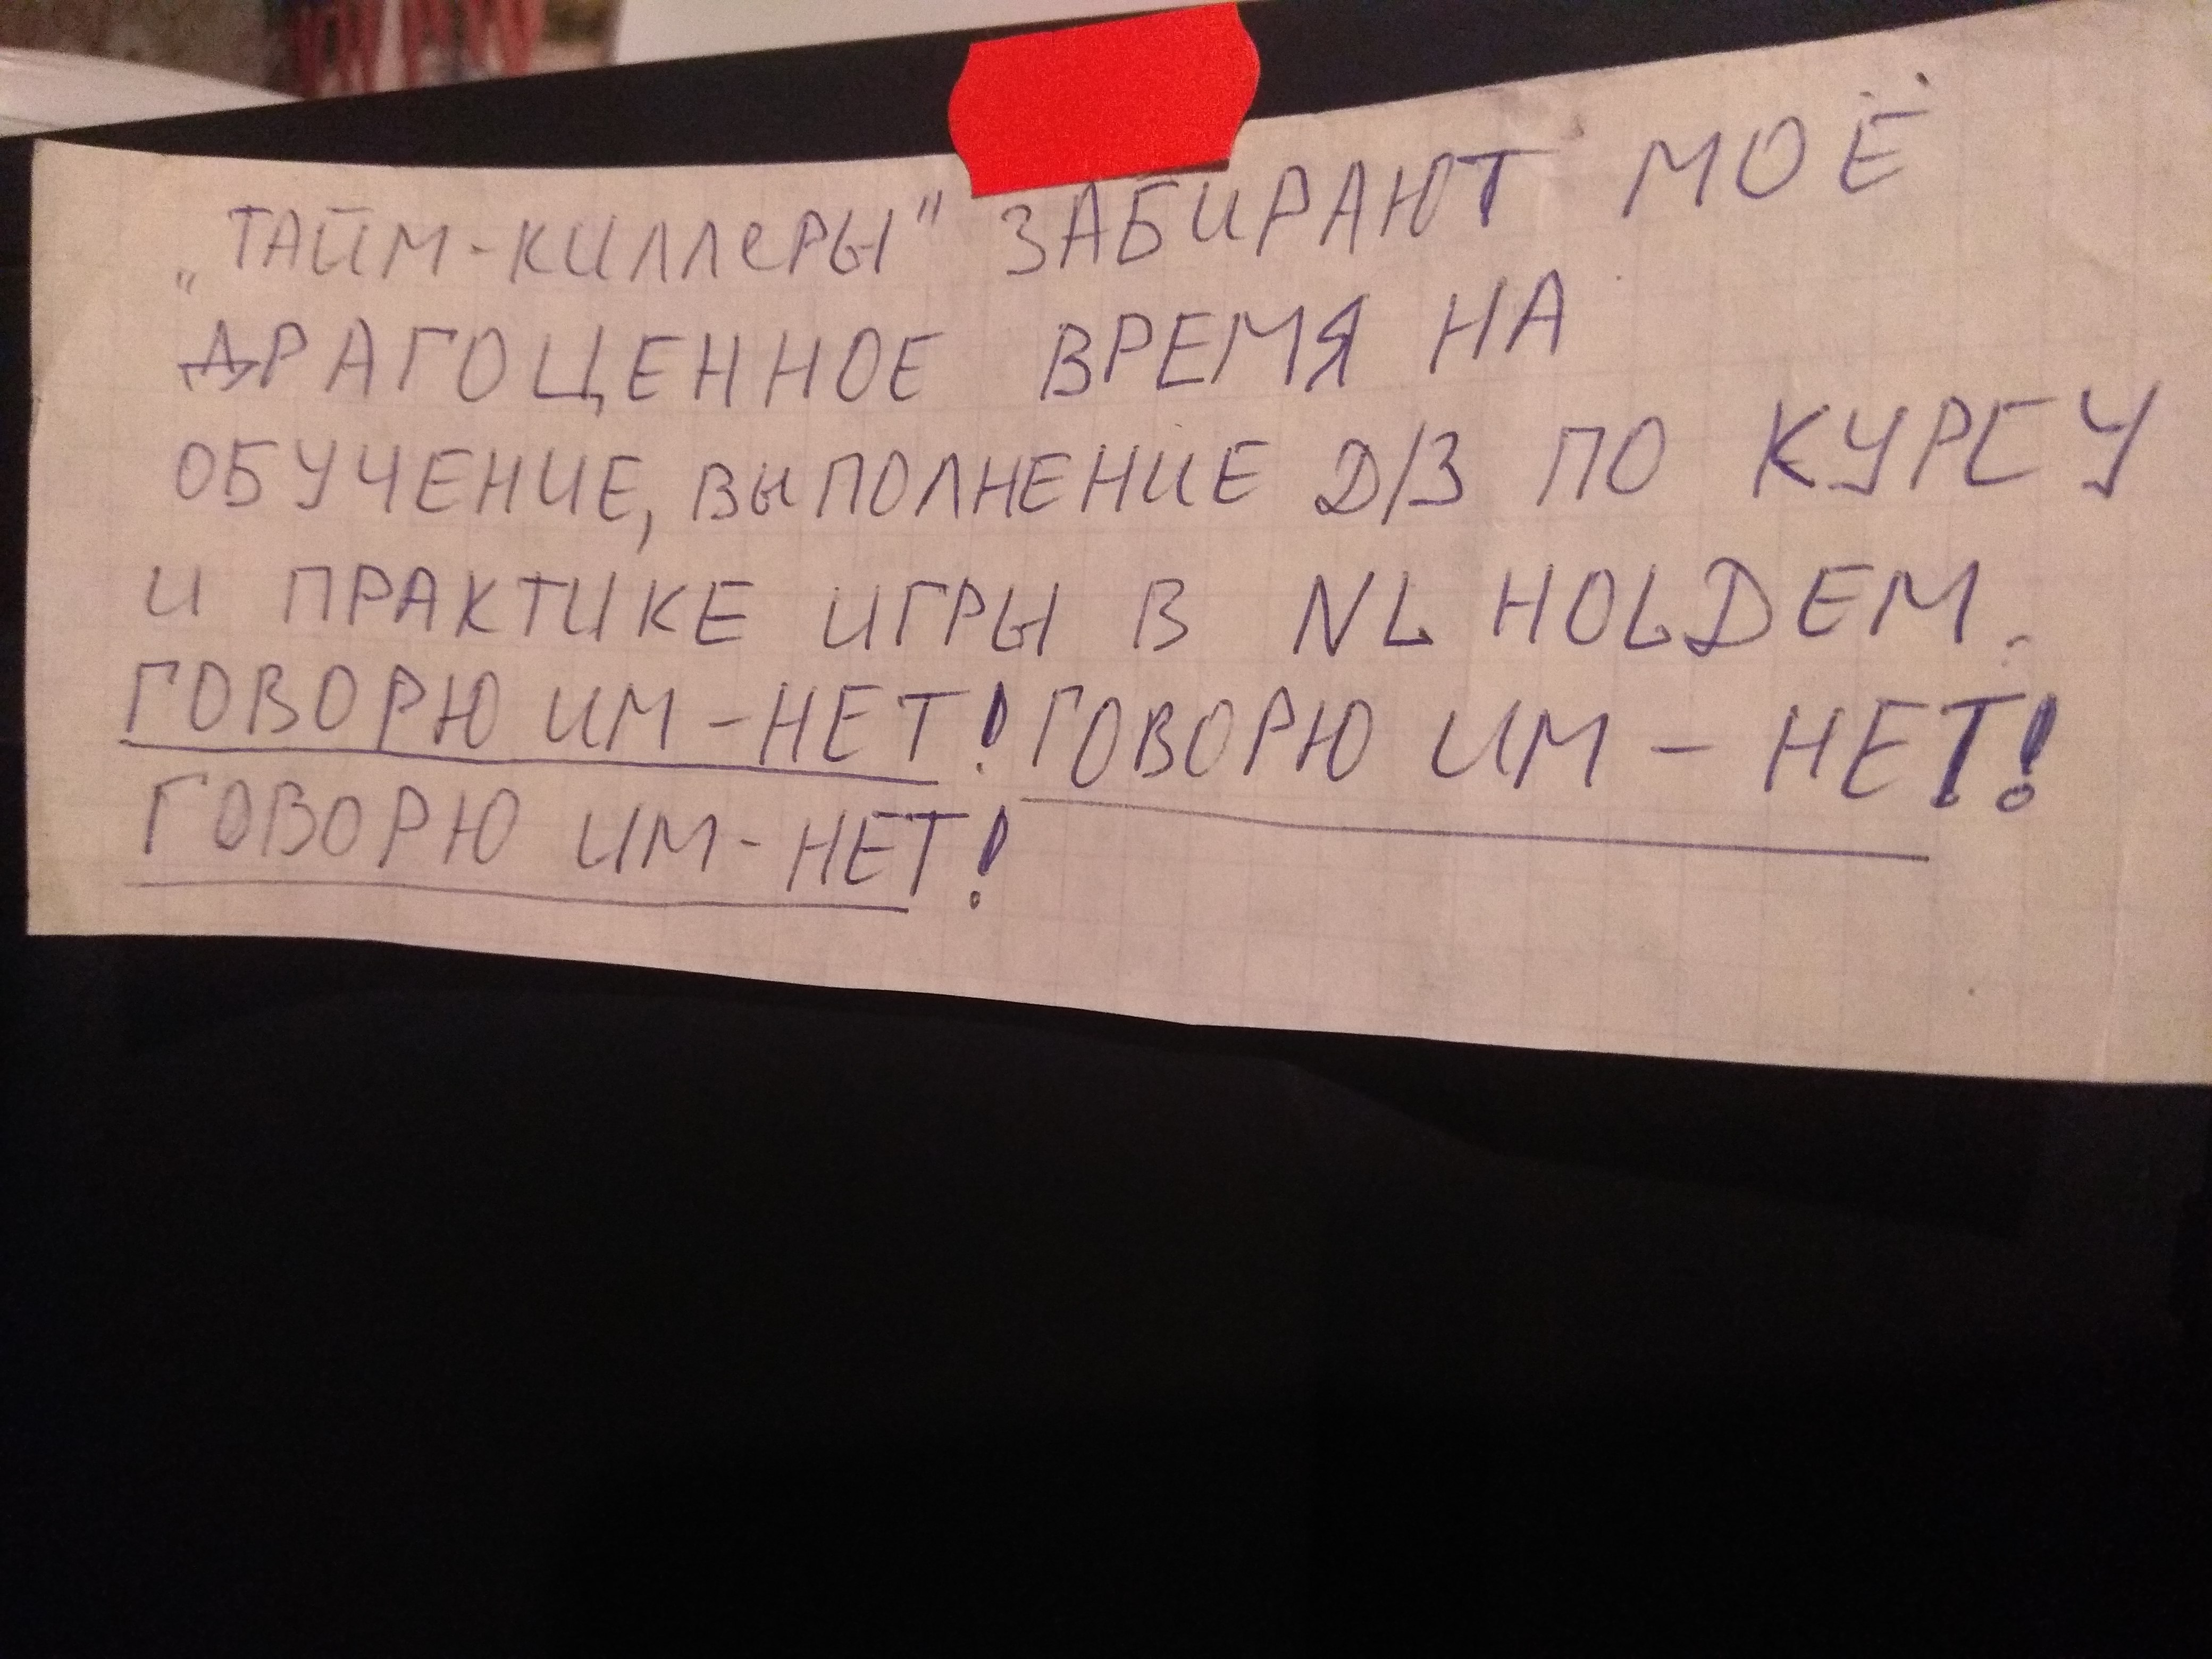 „ТАЙМ-КИЛЛеРЫ" ЗАБИРАЮТ МОЁ
ДРАГОЦЕННОЕ ВРЕМЯ НА
ОБУЧЕНИЕ, ВЫПОЛНЕНИЕ Д/З ПО КУРСУ
И ПРАКТИКЕ ИГРЫ В NL HOLDEM.
ГОВОРЮ ИМ - НЕТ! ГОВОРЮ ИМ - НЕТ!
ГОВОРЮ ИМ - НЕТ!